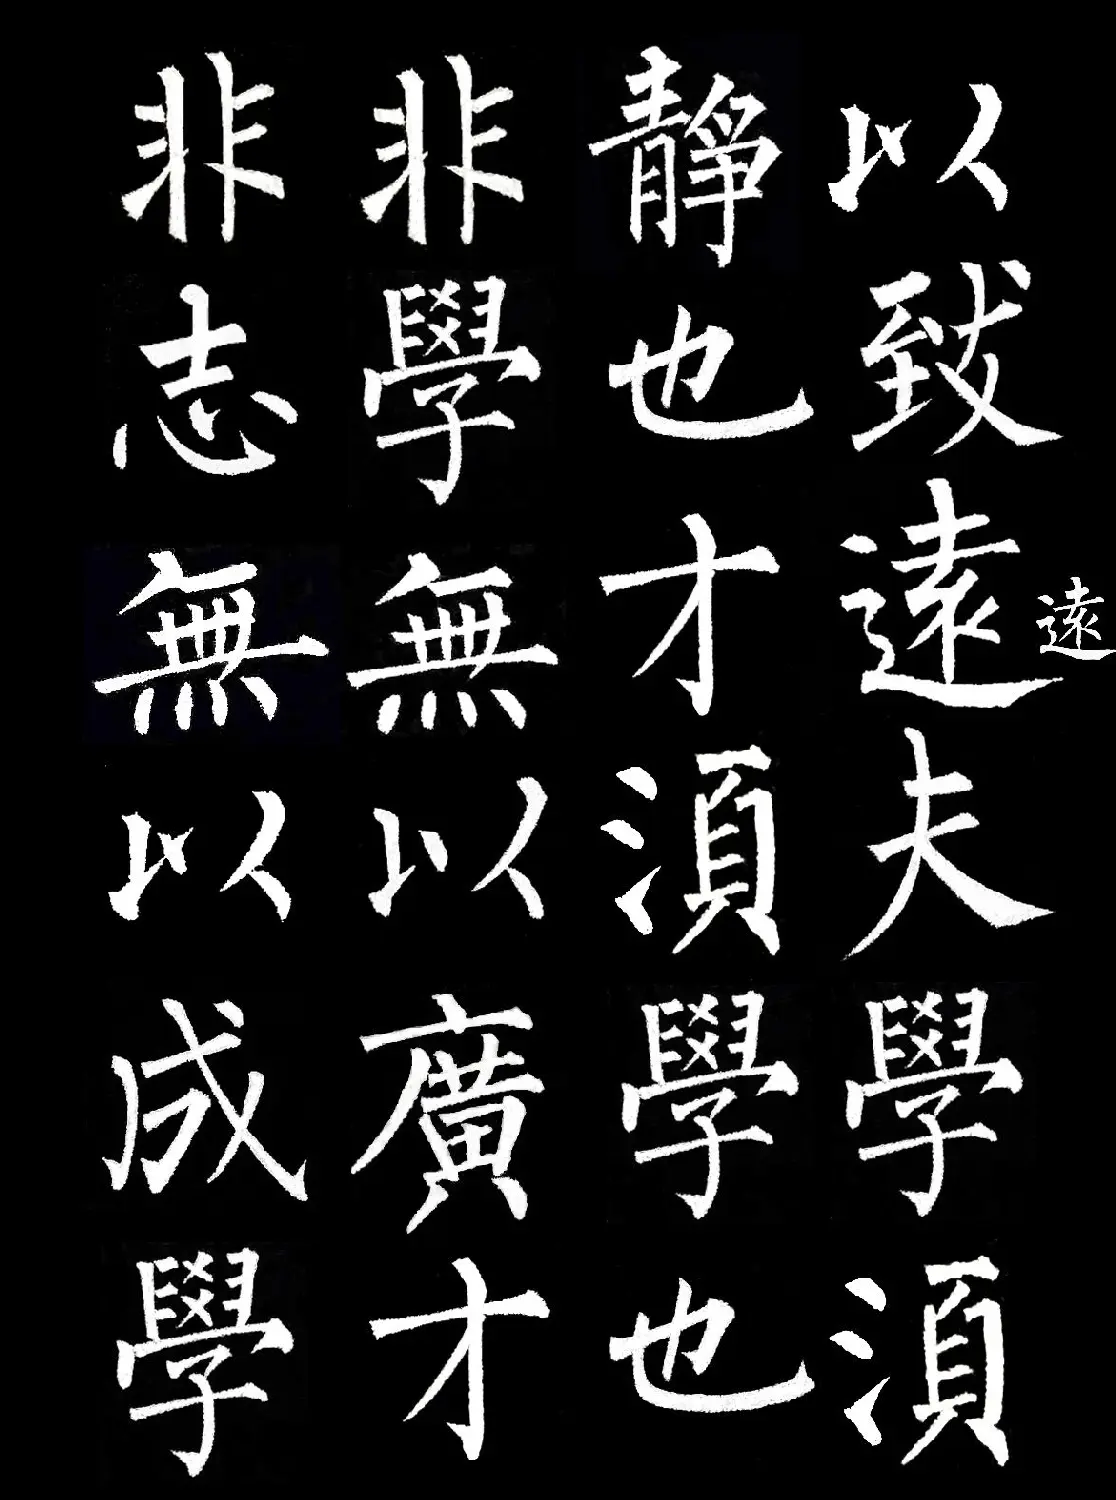 以致遠夫學須
遠
靜也才須學也
非學無以廣才
非志無以成學